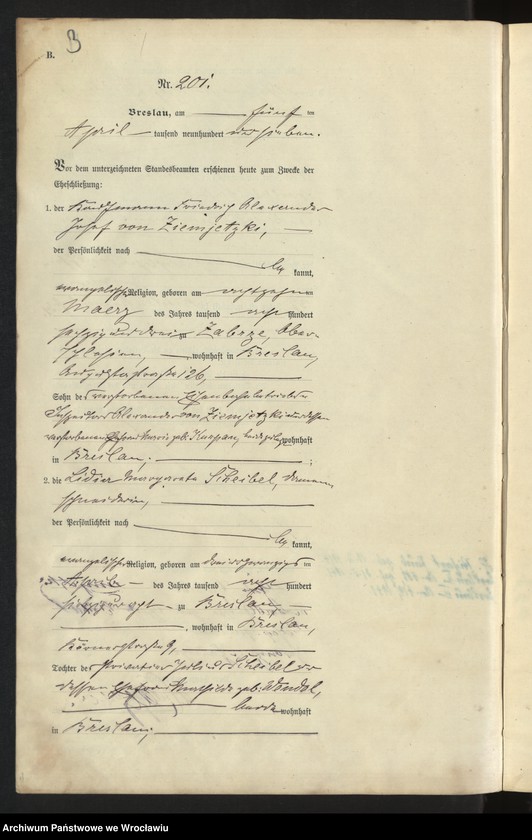 B. B
Nr. 201.
Breslau, am fünf ten
April tausend neunhundert und sieben.
Vor dem unterzeichneten Standesbeamten erschienen heute zum Zwecke der
Eheschließung:
1. der Kaufmann Friedrich Alexander
Josef von Ziemjetzki,
der Persönlichkeit nach
be kannt,
evangelischer Religion, geboren am achtzehnten
Maerz des Jahres tausend acht hundert
sechzig und drei zu Zabrze, Ober-
Schlesien, wohnhaft in Breslau,
Augustastraße 126,
Sohn des verstorbenen Eisenbahnbetriebs-
Inspektors Alexander von Ziemjetzki und dessen
verstorbenen Ehefrau geb. wohnhaft
in Breslau;
2. die Margareta Scheibel,
schneiderin,
der Persönlichkeit nach
be kannt,
evangelischer Religion, geboren am ten
des Jahres tausend acht hundert
zu Breslau,
, wohnhaft in Breslau,
Körnerstraße 9,
Tochter des Privatier Julius Scheibel und
dessen Ehefrau Mathilde geb.
beide wohnhaft
in Breslau;
Archiwum Państwowe we Wrocławiu